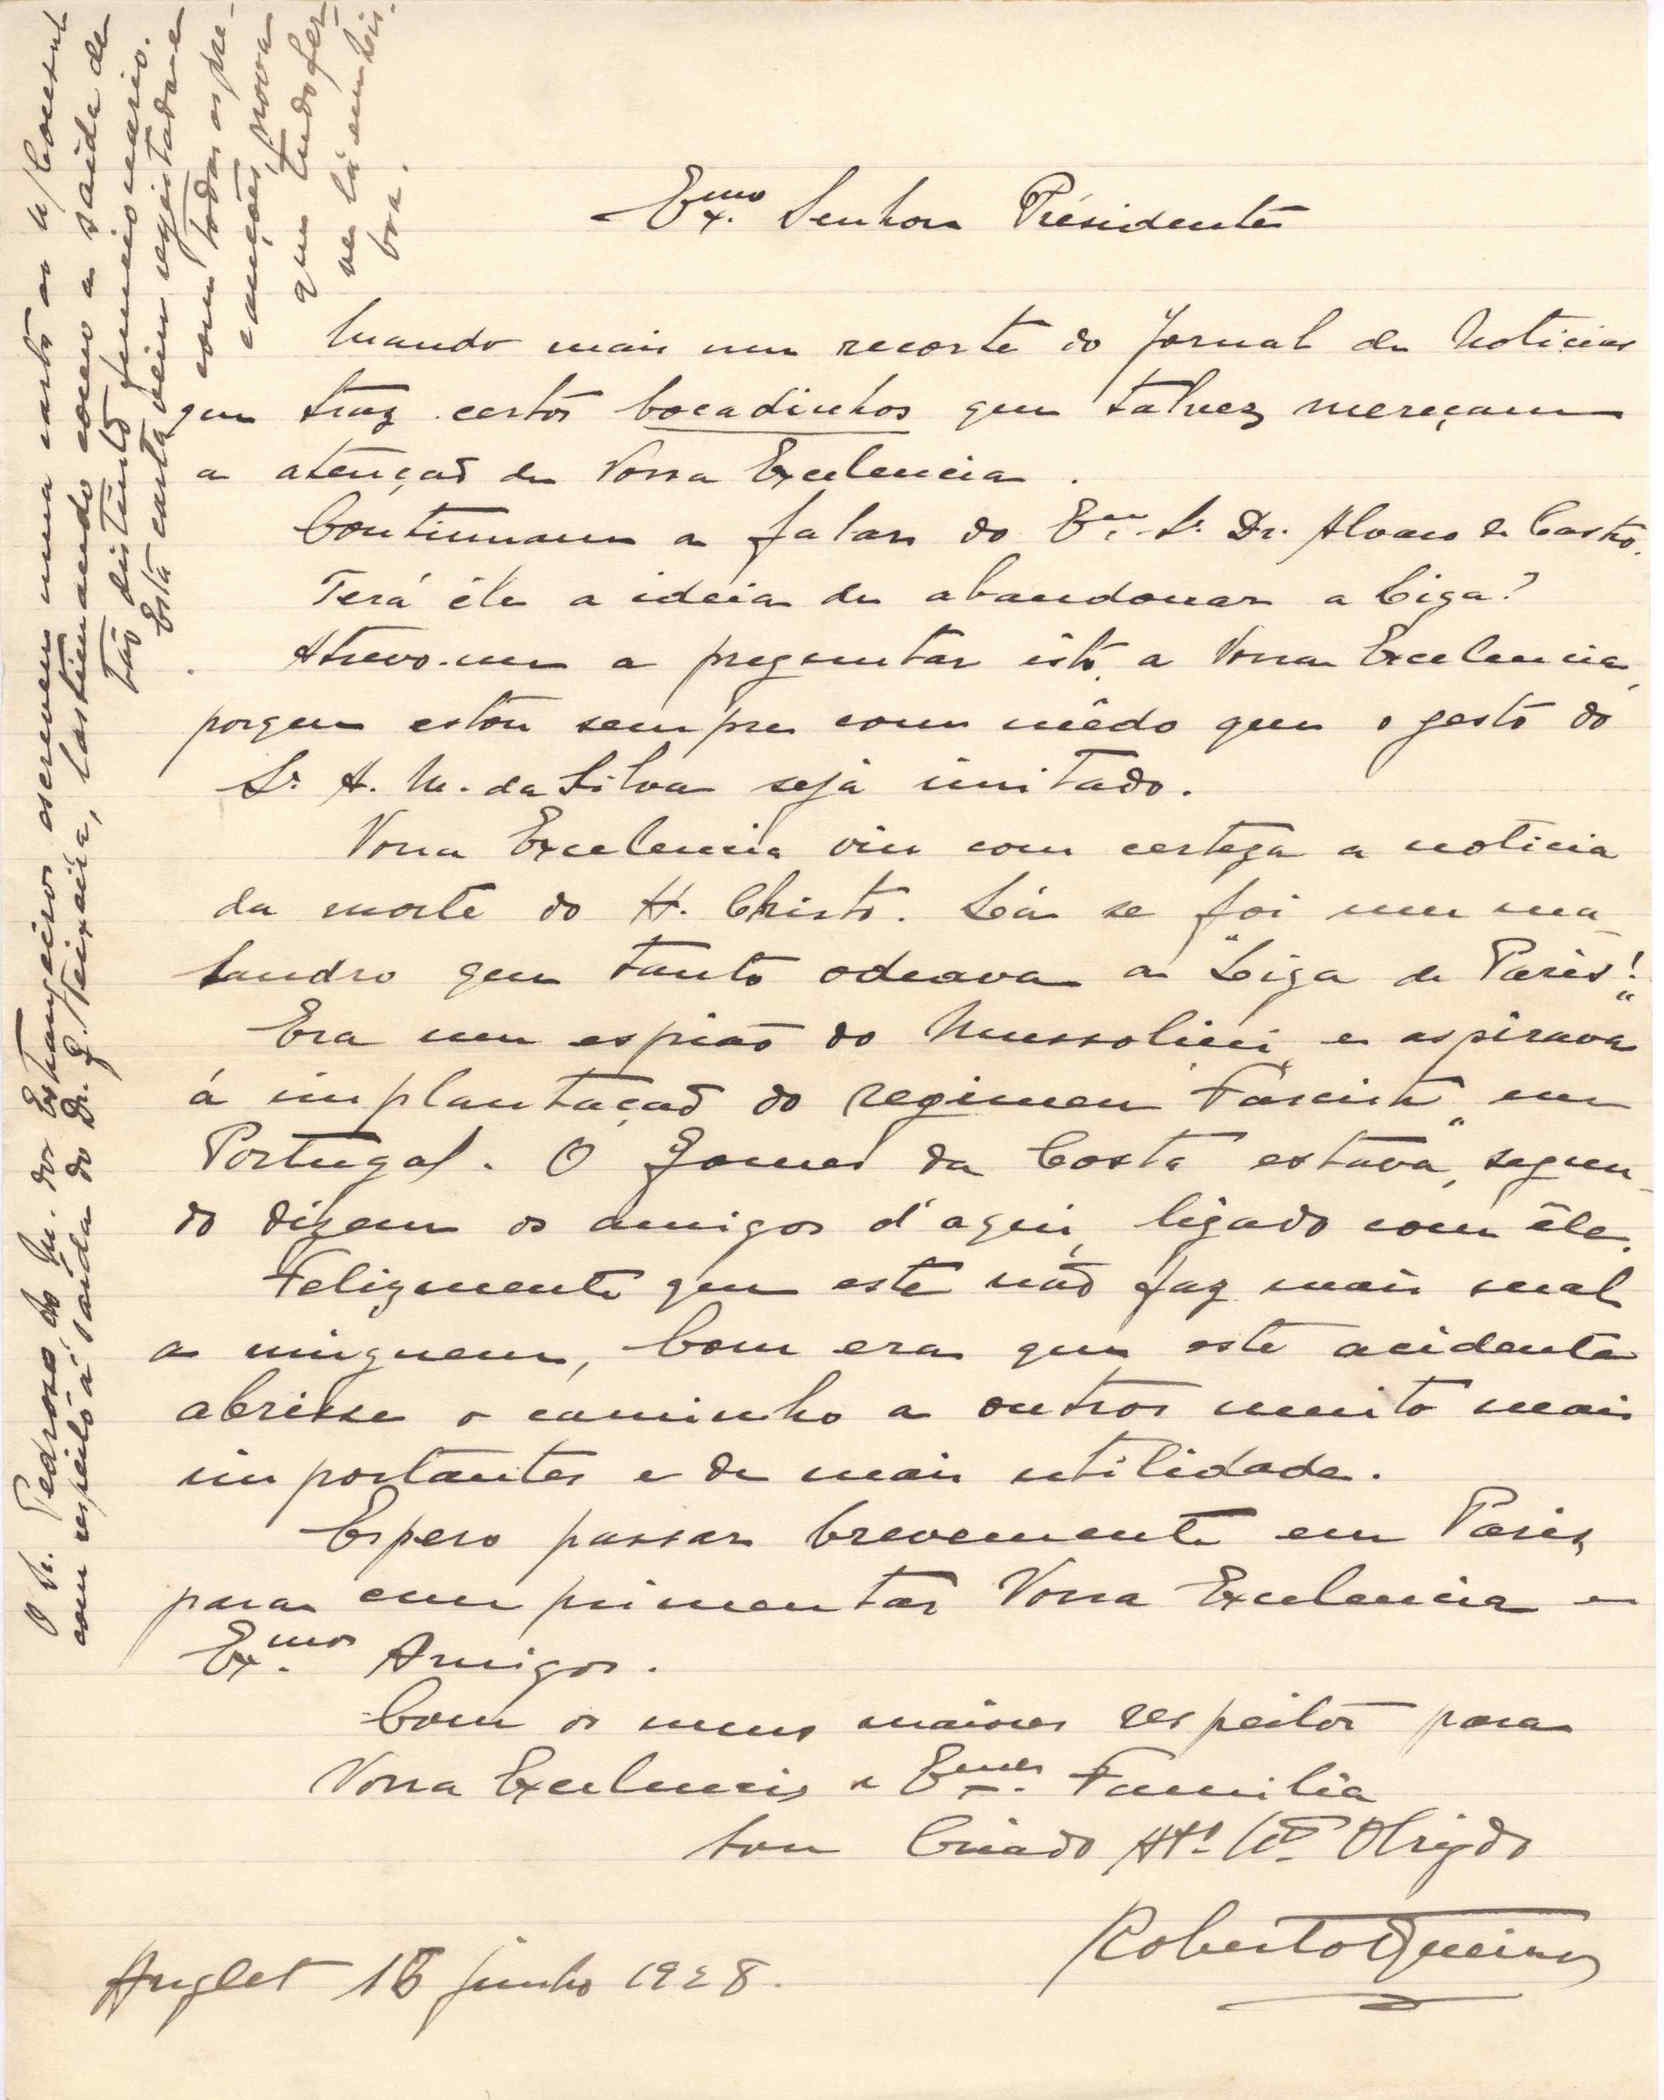 Ex.mo Senhor Presidente
Mando mais um recorte do Jornal de Noticias
que traz certos bocadinhos que talvez mereçam
a atenção de Vossa Excelencia.
Continuam a falar do Ex.mo Sr. Dr. Alvaro de Castro.
Terá êle a ideia de abandonar a Liga?
Atrevo-me a preguntar isto a Vossa Excelencia,
porque estou sempre com mêdo que o gesto do
Sr. A. M. da Silva seja imitado.
Vossa Excelencia viu com certeza a noticia
da morte do H. Christo. Lá se foi um ma-
landro que tanto odeava a "Liga de Paris"!
Era um espião do Mussolini, e aspirava
á implantação do regimen "Fascista" em
Portugal. O Gomes da Costa estava, segun-
do dizem os amigos d'aqui, ligado com êle.
Felizmente que este não faz mais mal
a ninguem, bom era que este acidente
abrisse o caminho a outros muito mais
importantes e de mais utilidade.
Espero passar brevemente em Paris,
para cumprimentar Vossa Excelencia e
Ex.mos Amigos.
Com os meus maiores respeitos para
Vossa Excelencia e Ex.ma Familia
Sou Criado At.º V.or Obrigdo
Roberto Queiroz
Anglet 16 junho 1928.
O Sr. Pedroso do Mn. dos Estrangeiros escreveu uma carta ao n/ Consul
com respeito á saida do Dr. G. Teixeira, lastimando como a saida de
tão distinto funcionario.
Esta carta veiu registada e
com todas as pre-
cauções, prova
que tudo fer-
ve lá em Lis-
boa.